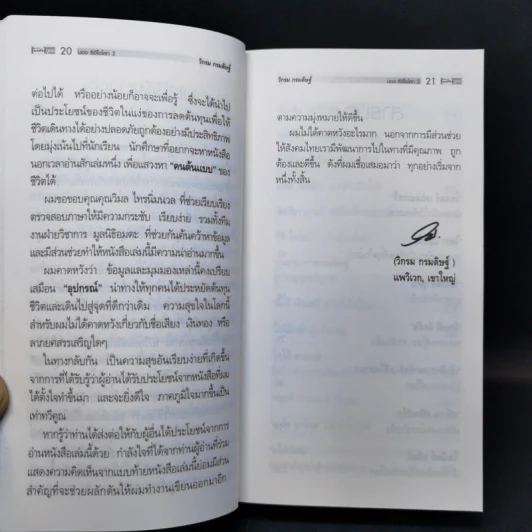 20 มอง ซีอีโอโลก 2 วิกรม กรมดิษฐ์
ต่อไปได้ หรืออย่างน้อยก็อาจจะเพื่อรู้ ซึ่งจะได้นำไป
เป็นประโยชน์ของชีวิตในแง่ของการลดต้นทุนเพื่อให้
ชีวิตเดินทางได้อย่างปลอดภัยถูกต้องอย่างมีประสิทธิภาพ
โดยมุ่งเน้นไปที่นักเรียน นักศึกษาที่อยากจะหาหนังสือ
นอกเวลาอ่านสักเล่มหนึ่ง เพื่อแสวงหา "คนต้นแบบ" ของ
ชีวิตได้
ผมขอขอบคุณคุณวิมล ไทรนิ่มนวล ที่ช่วยเรียบเรียง
ตรวจสอบภาษาให้มีความกระชับ เรียบง่าย รวมทั้งทีม
งานฝ่ายวิชาการ มูลนิธิอมตะ ที่ช่วยกันค้นคว้าหาข้อมูล
และมีส่วนช่วยทำให้หนังสือเล่มนี้มีความน่าอ่านมากขึ้น
ผมคาดหวังว่า ข้อมูลและมุมมองเหล่านี้คงเปรียบ
เสมือน "อุปกรณ์" นำทางให้ทุกคนได้ประหยัดต้นทุน
ชีวิตและเดินไปสู่จุดที่ดีกว่าเดิม ความสุขใจในโลกนี้
สำหรับผมไม่ได้คาดหวังเกี่ยวกับชื่อเสียง เงินทอง หรือ
ลาภยศสรรเสริญใดๆ
ในทางกลับกัน เป็นความสุขอันเรียบง่ายที่เกิดขึ้น
จากการที่ได้รับรู้ว่าผู้อ่านได้รับประโยชน์จากหนังสือที่ผม
ได้ตั้งใจทำขึ้นมา และจะยิ่งดีใจ ภาคภูมิใจมากขึ้นเป็น
เท่าทวีคูณ
หากรู้ว่าท่านได้ส่งต่อให้กับผู้อื่นได้ประโยชน์จากการ
อ่านหนังสือเล่มนี้ด้วย กำลังใจที่ได้จากท่านผู้อ่านที่ร่วม
แสดงความคิดเห็นจากแบบท้ายหนังสือเล่มนี้ย่อมมีส่วน
สำคัญที่จะช่วยผลักดันให้ผมทำงานเขียนออกมาอีก
วิกรม กรมดิษฐ์ มอง ซีอีโอโลก 2 21
ตามความมุ่งหมายให้ดีขึ้น
ผมไม่ได้คาดหวังอะไรมาก นอกจากการมีส่วนช่วย
ให้สังคมไทยเรามีพัฒนาการไปในทางที่มีคุณภาพ ถูก
ต้องและดีขึ้น ดังที่ผมเชื่อเสมอมาว่า ทุกอย่างเริ่มจาก
หนึ่งทั้งสิ้น
(วิกรม กรมดิษฐ์ )
แพวิเวก, เขาใหญ่